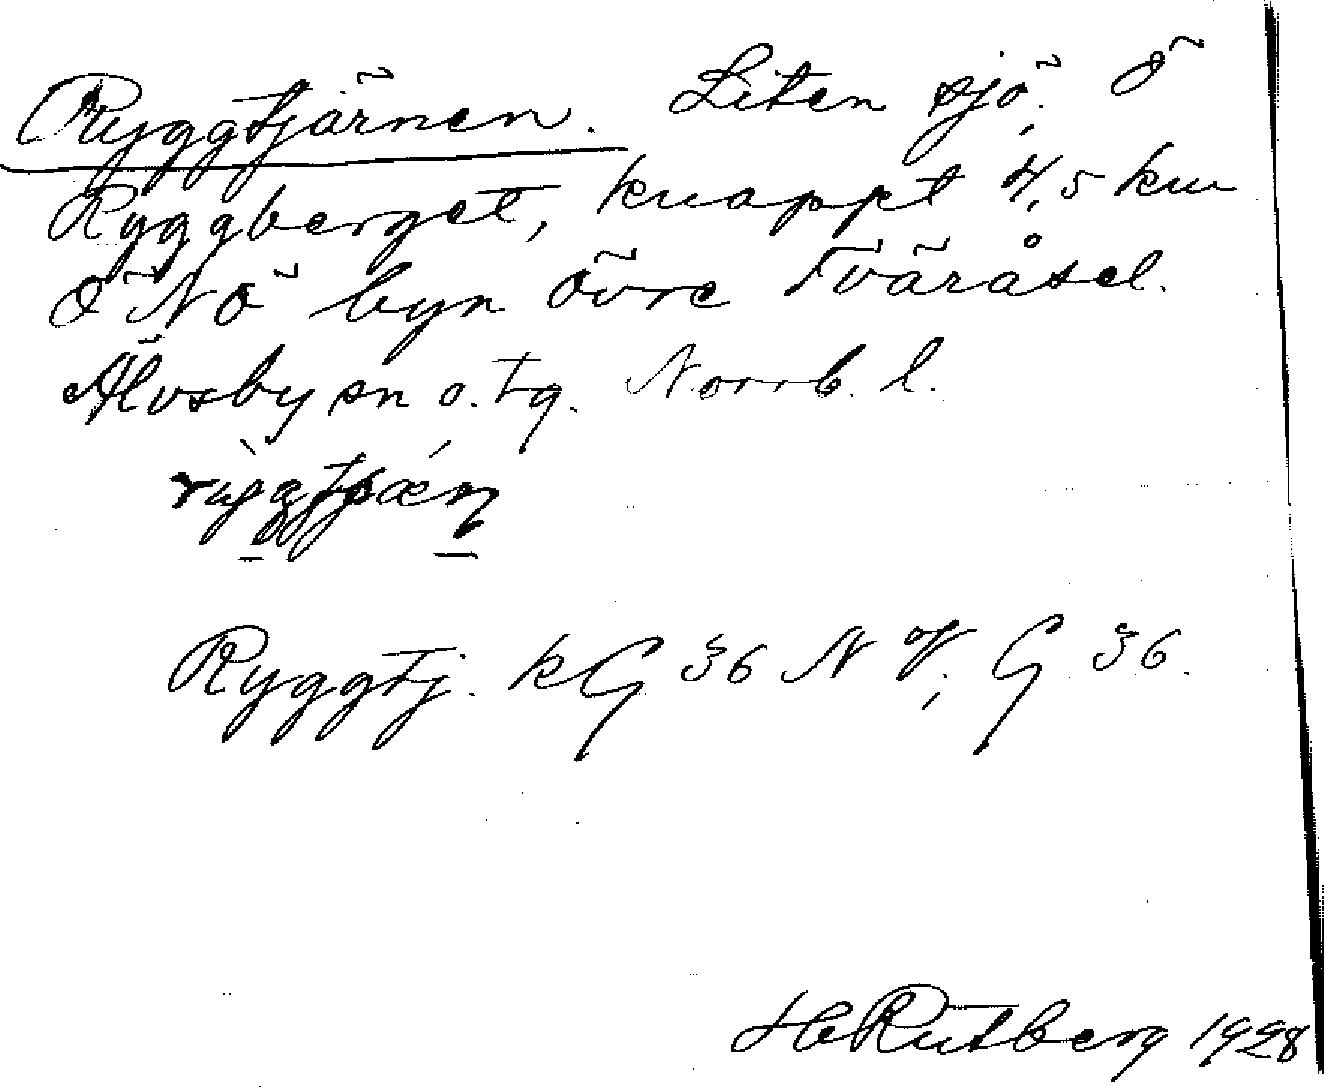 Ryggtjärnen. Liten sjö. Ö
Ryggberget, knappt 4,5 km
ÖNÖ byn Övre Tväråsel.
Älvsby sn o. tg. Norrb. l.
Ryggtj. kG 36 NV; G 36.
H Rutberg 1928